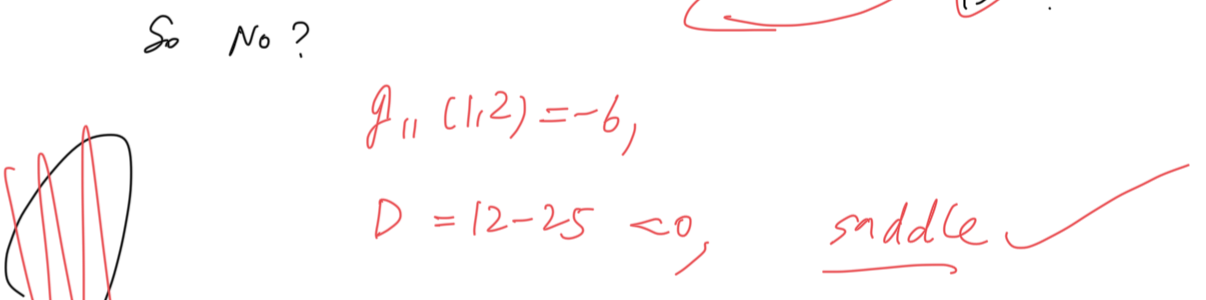 So No?
g₁₁ (1,2) = -6,
D = 12-25 <0, saddle